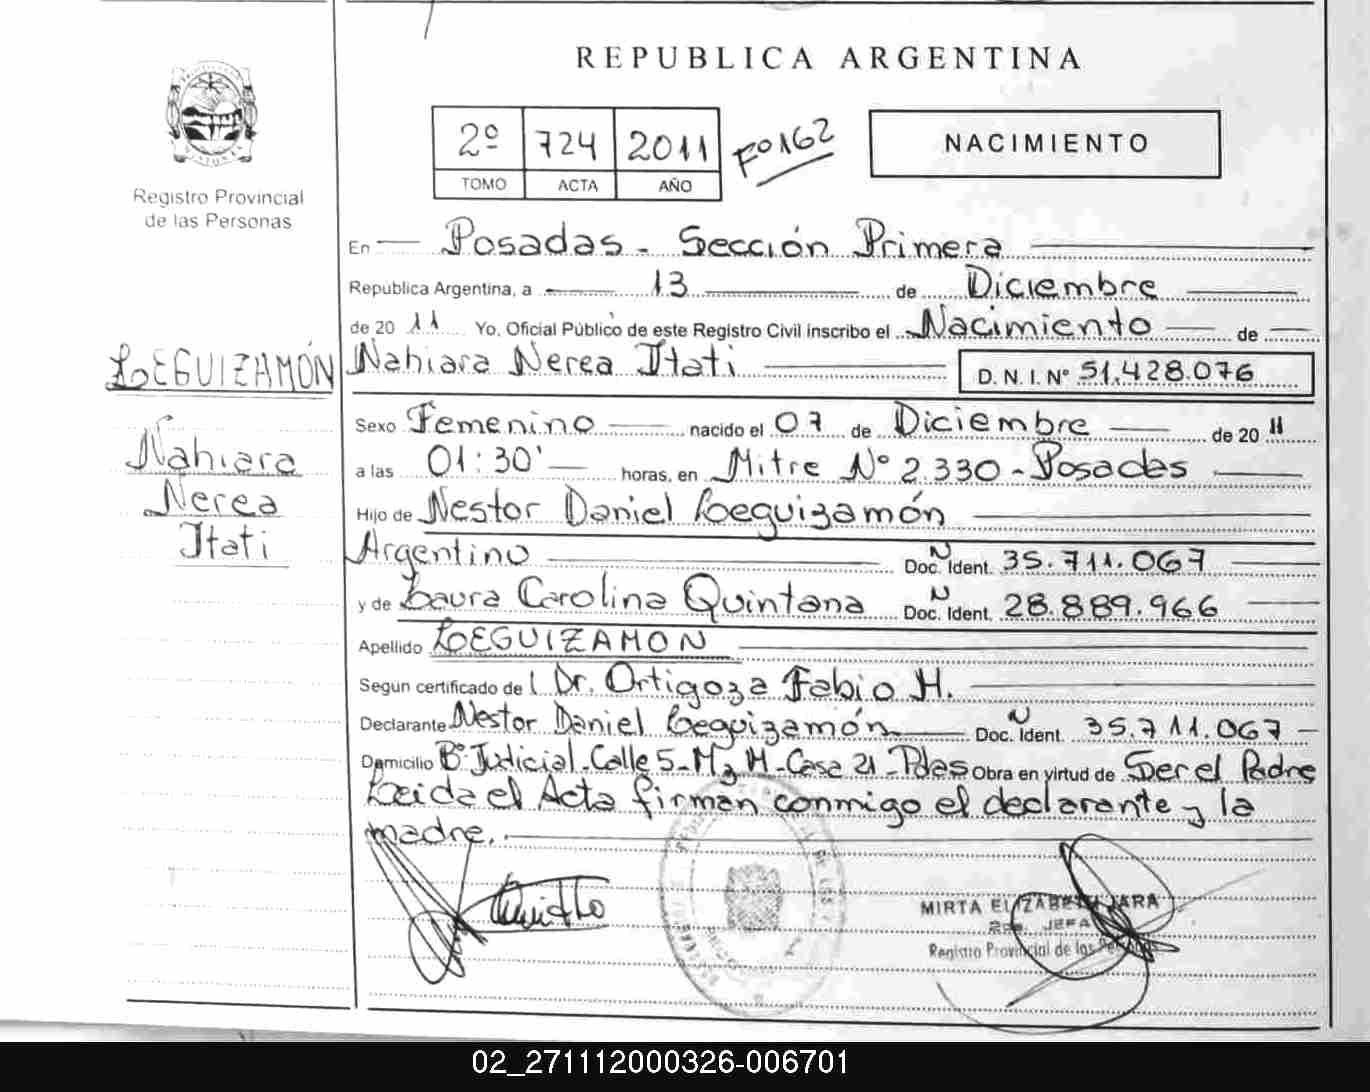 REPUBLICA ARGENTINA
2º 724 2011 Fº162
TOMO ACTA AÑO
NACIMIENTO
Registro Provincial
de las Personas
LEGUIZAMÓN
Nahiara
Nerea
Itati
En Posadas - Sección Primera
Republica Argentina, a 13 de Diciembre
de 20 11 Yo, Oficial Público de este Registro Civil inscribo el Nacimiento de
Nahiara Nerea Itati D. N. I. Nº 51.428.076
Sexo Femenino nacido el 07 de Diciembre de 20 11
a las 01:30' horas, en Mitre Nº 2.330 - Posadas
Hijo de Nestor Daniel Leguizamón
Argentino Doc. Ident. 35.711.067
y de Laura Carolina Quintana Doc. Ident. 28.889.966
Apellido LEGUIZAMON
Segun certificado de Dr. Ortigoza Fabio H.
Declarante Nestor Daniel Leguizamón Doc. Ident. 35.711.067
Domicilio Bº Judicial - Calle 5 - Mz H - Casa 21 - Pdas Obra en virtud de Ser el Padre
Leida el Acta firman conmigo el declarante y la
madre.
MIRTA ELIZABETH JARA
JEFA
Registro Provincial de las Personas
02_271112000326-006701